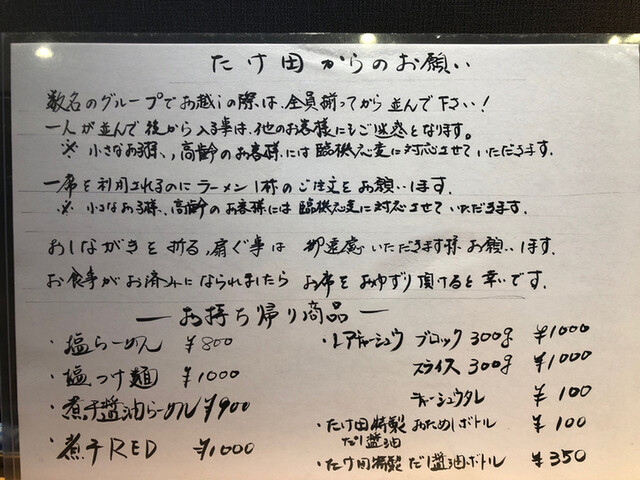 たけ田からのお願い
数名のグループでお越しの際は、全員揃ってから並んで下さい！
一人が並んで後から入る事は、他のお客様にもご迷惑となります。
※ 小さなお子様、高齢のお客様には臨機応変に対応させていただきます。
一席を利用されるのにラーメン1杯のご注文をお願いします。
※ 小さなお子様、高齢のお客様には臨機応変に対応させていただきます。
おしながきを折る、扇ぐ事は御遠慮いただきます様お願いします。
お食事がお済みになられましたらお席をおゆずり頂けると幸いです。
— お持ち帰り商品 —
・塩らーめん ¥800
・塩つけ麺 ¥1000
・煮干醤油らーめん ¥900
・煮干RED ¥1000
・レアチャーシュウ ブロック 300g ¥1000
スライス 300g ¥1000
チャーシュウタレ ¥100
・たけ田特製 おためしボトル ¥100
だし醤油
・たけ田特製 だし醤油ボトル ¥350